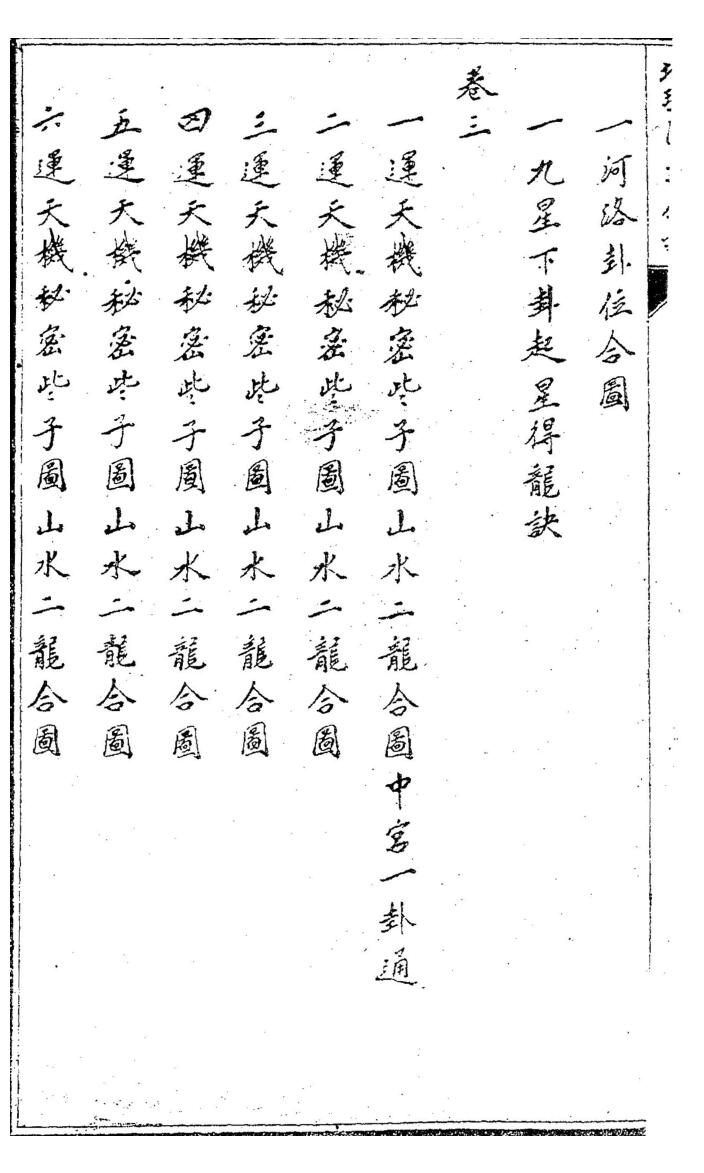 一河洛卦位合圖
一九星下卦起星得龍訣
卷三
一運天機秘密些子圖山水二龍合圖中宮一卦通
二運天機秘密些子圖山水二龍合圖
三運天機秘密些子圖山水二龍合圖
四運天機秘密些子圖山水二龍合圖
五運天機秘密些子圖山水二龍合圖
六運天機秘密些子圖山水二龍合圖